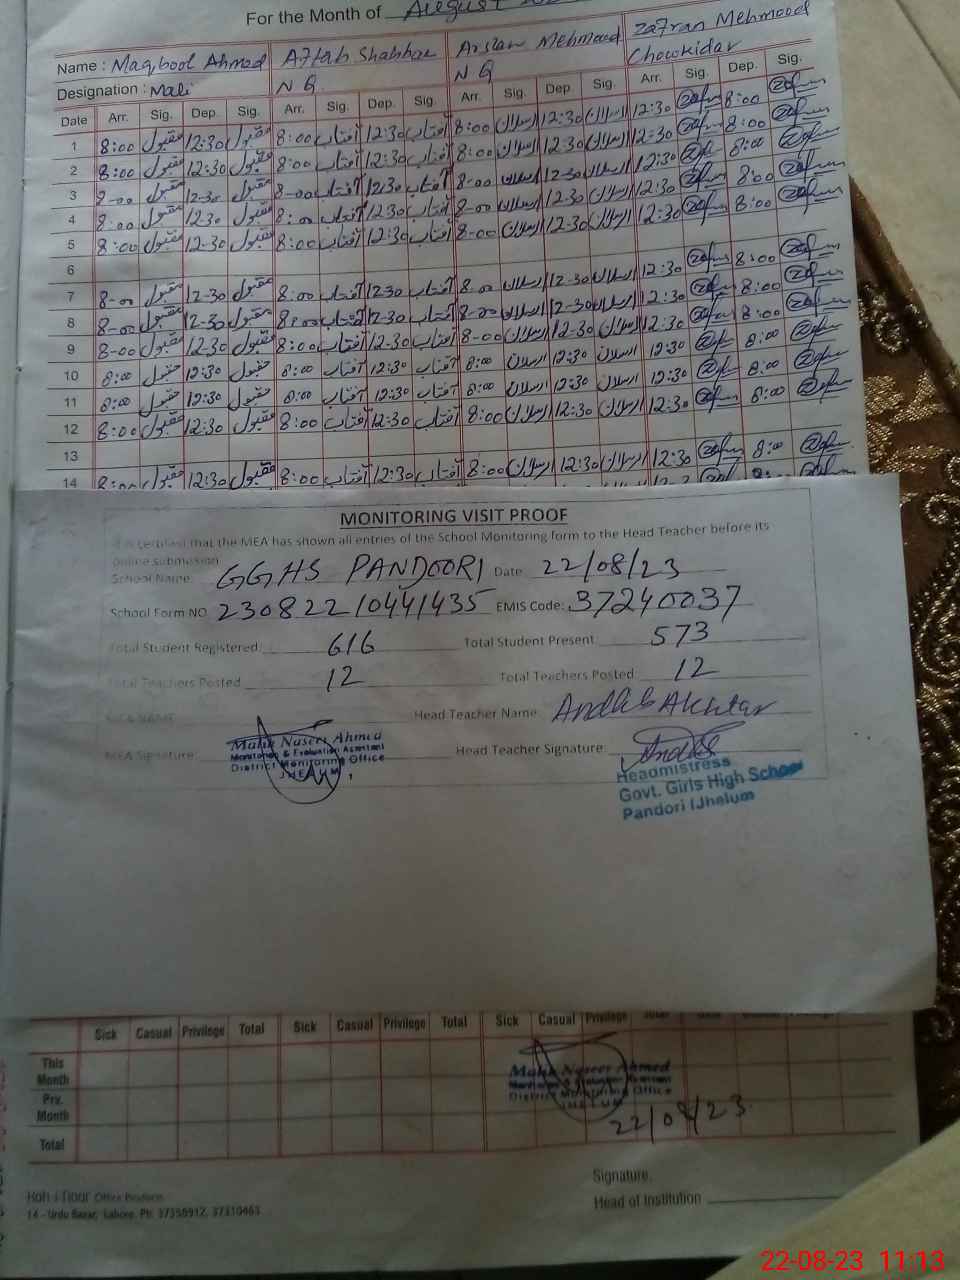 For the Month of August
Name : Maqbool Ahmad Aftab Shabbar Arslan Mehmood Zafran Mehmood
Designation : Mali N Q N Q Chowkidar
Date Arr. Sig. Dep. Sig. Arr. Sig. Dep. Sig. Arr. Sig. Dep. Sig. Arr. Sig. Dep. Sig.
1 8:00 مقبول 12:30 مقبول 8:00 آفتاب 12:30 آفتاب 8:00 ارسلان 12:30 ارسلان 12:30 8:00
2 8:00 مقبول 12:30 مقبول 8:00 آفتاب 12:30 آفتاب 8:00 ارسلان 12:30 ارسلان 12:30 8:00
3 8-00 مقبول 12-30 مقبول 8-00 آفتاب 12:30 آفتاب 8-00 ارسلان 12-30 ارسلان 12:30 8:00
4 8:00 مقبول 12:30 مقبول 8:00 آفتاب 12:30 آفتاب 8-00 ارسلان 12-30 ارسلان 12:30 8:00
5 8:00 مقبول 12-30 مقبول 8:00 آفتاب 12:30 آفتاب 8-00 ارسلان 12-30 ارسلان 12:30 8:00
6
7 8-00 مقبول 12-30 مقبول 8:00 آفتاب 12:30 آفتاب 8:00 ارسلان 12-30 ارسلان 12:30 8:00
8 8-00 مقبول 12-30 مقبول 8:00 آفتاب 12-30 آفتاب 8-00 ارسلان 12-30 ارسلان 12:30 8:00
9 8-00 مقبول 12:30 مقبول 8:00 آفتاب 12:30 آفتاب 8-00 ارسلان 12:30 ارسلان 12:30 8:00
10 8:00 مقبول 12:30 مقبول 8:00 آفتاب 12:30 آفتاب 8:00 ارسلان 12:30 ارسلان 12:30 8:00
11 8:00 مقبول 12:30 مقبول 8:00 آفتاب 12:30 آفتاب 8:00 ارسلان 12:30 ارسلان 12:30 8:00
12 8:00 مقبول 12:30 مقبول 8:00 آفتاب 12:30 آفتاب 8:00 ارسلان 12:30 ارسلان 12:30 8:00
13
14 8:00 مقبول 12:30 مقبول 8:00 آفتاب 12:30 آفتاب 8:00 ارسلان 12:30 ارسلان 12:30 8:00
MONITORING VISIT PROOF
certified that the MEA has shown all entries of the School Monitoring form to the Head Teacher before its
online submission
School Name GGHS PANDOORI Date 22/08/23
School Form NO. 230822 10441435 EMIS Code: 37240037
Total Student Registered: 616 Total Student Present: 573
Total Teachers Posted 12 Total Teachers Posted 12
MEA NAME Head Teacher Name Andlib Akhtar
MEA Signature Head Teacher Signature
Malik Naseer Ahmed
Monitoring & Evaluation Assistant
District Monitoring Office
JHELUM
Headmistress
Govt. Girls High School
Pandori (Jhelum
Sick Casual Privilege Total Sick Casual Privilege Total Sick Casual Privilege Total
This
Month
Prv.
Month
Total
Malik Naseer Ahmed
Monitoring & Evaluation Assistant
District Monitoring Office
JHELUM
22/08/23
Signature.
Head of Institution
Koh-i-Noor Office Products
14 - Urdu Bazar, Lahore. Ph: 37356912, 37310463
22-08-23 11:13